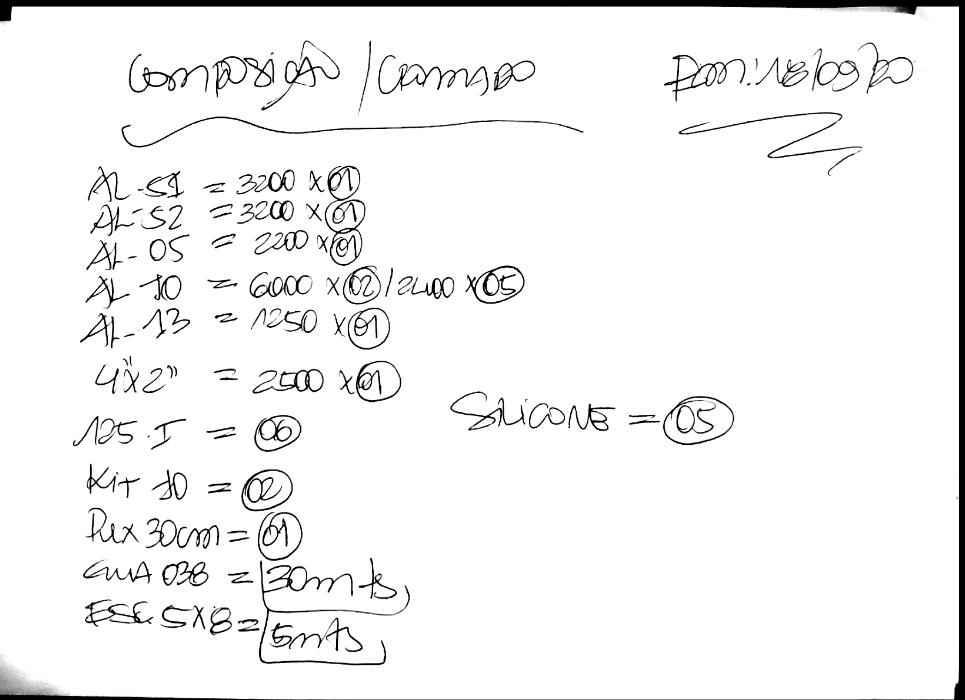 Composição /
18/09/20
AL-S1 = 3200 x 01
AL-S2 = 3200 x 01
AL-05 = 2200 x 01
AL 10 = 6000 x 02 / 2400 x 05
AL-13 = 1250 x 01
4"x2" = 2500 x 01
SILICONE = 05
125.I = 06
Kit 10 = 02
30cm = 01
038 = 30mts
ESC. 5x8 = 5mts